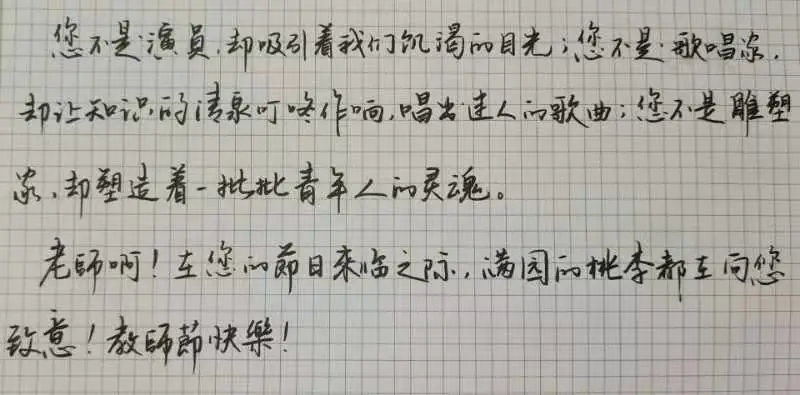 您不是演員,却吸引着我们饥渴的目光;您不是歌唱家,
却让知识的清泉叮咚作响,唱出迷人的歌曲;您不是雕塑
家,却塑造着一批批青年人的灵魂。
老师啊!在您的節日来临之际,满园的桃李都在向您
致意!教师節快樂!